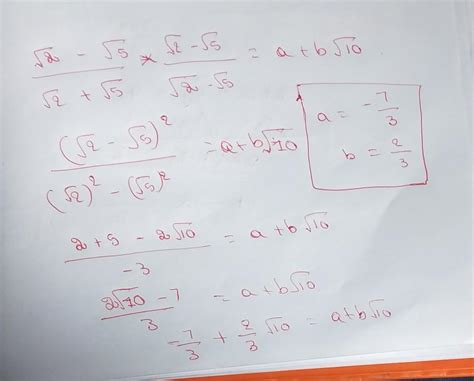 (√2 - √5)/(√2 + √5) * (√2 - √5)/(√2 - √5) = a + b√10
(√2 - √5)²/((√2)² - (√5)²) = a + b√10
a = -7/3
b = 2/3
(2 + 5 - 2√10)/(-3) = a + b√10
(2√10 - 7)/3 = a + b√10
-7/3 + 2/3 √10 = a + b√10